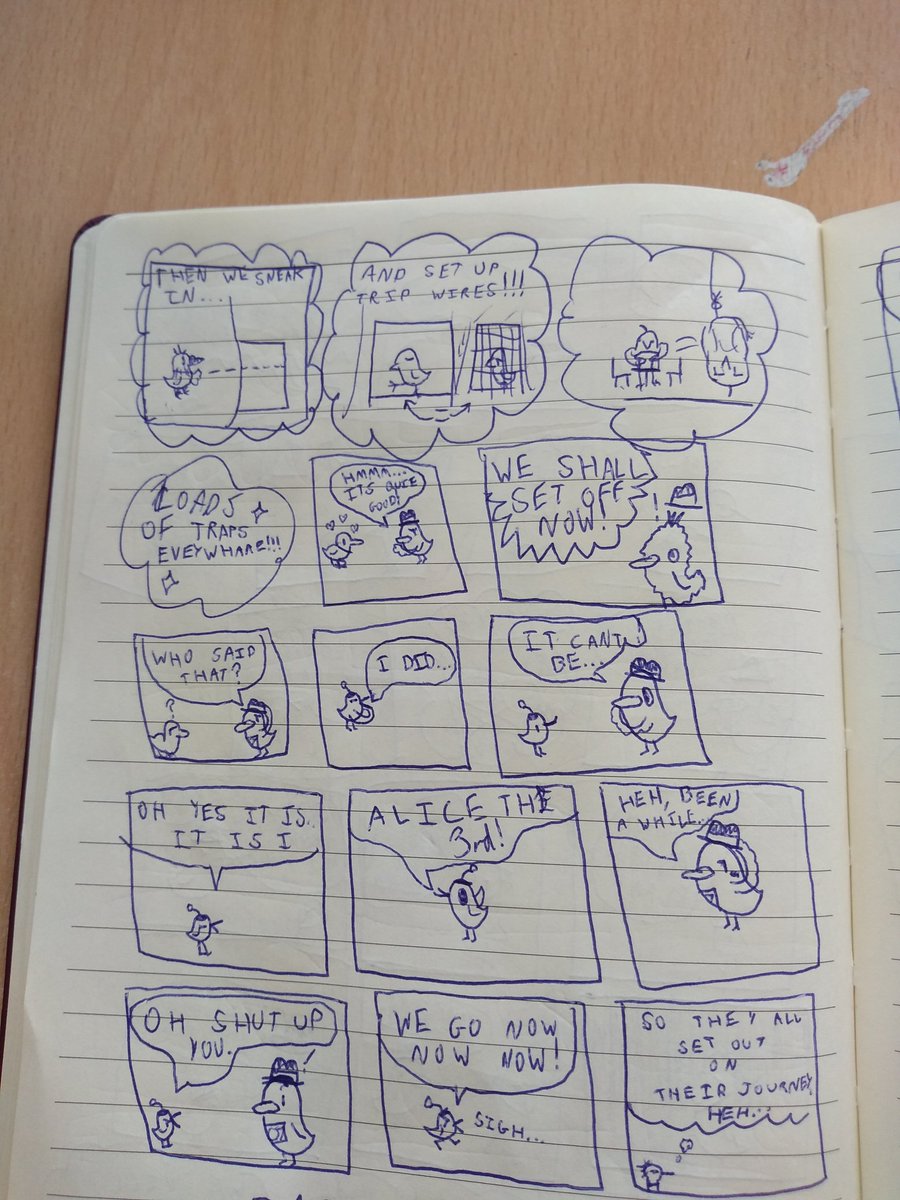 THEN WE SNEAK
IN...
AND SET UP
TRIP WIRES!!!
LOADS
OF TRAPS
EVEYWHARE!!!
HMMM...
ITS QUIE
GOOD!
WE SHALL
SET OFF
NOW!
!
WHO SAID
THAT?
?
I DID...
IT CANT
BE...
OH YES IT IS..
IT IS I
ALICE THE
3rd!
HEH, BEEN
A WHILE...
OH SHUT UP
YOU.
WE GO NOW
NOW NOW!
SIGH...
SO THEY ALL
SET OUT
ON
THEIR JOURNEY
HEH...